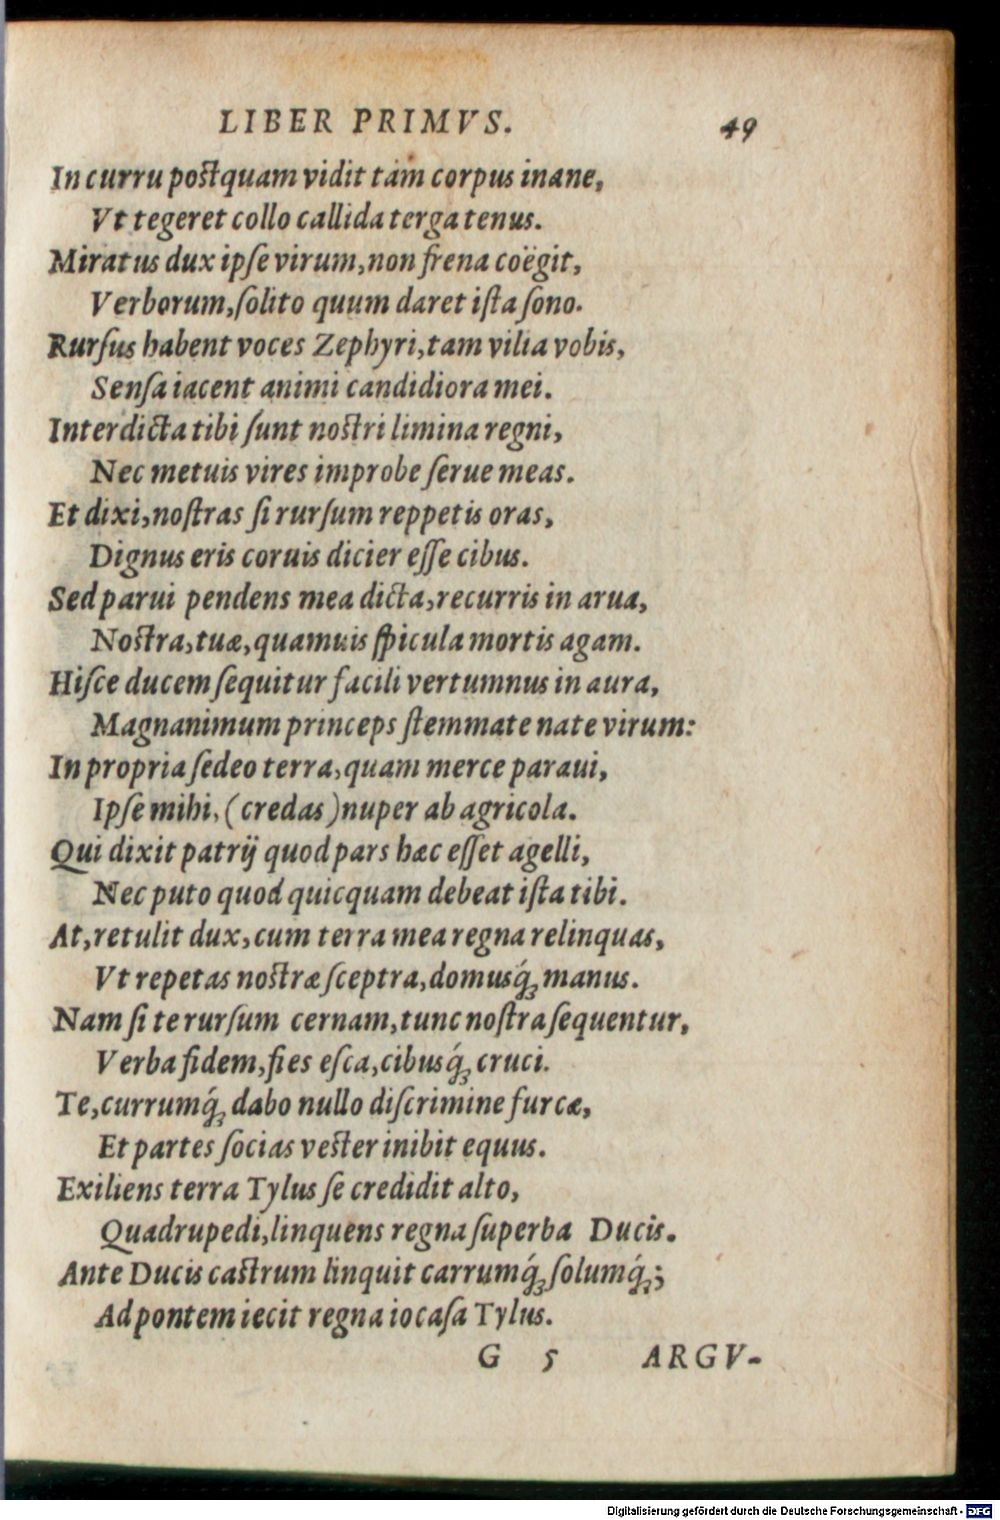 LIBER PRIMVS. 49
In curru postquam vidit tám corpus inane,
Vt tegeret collo callida terga tenus.
Miratus dux ipſe virum, non frena coëgit,
Verborum, ſolito quum daret iſta ſono.
Rurſus habent voces Zephyri, tam vilia vobis,
Senſa iacent animi candidiora mei.
Interdicta tibi ſunt nostri limina regni,
Nec metuis vires improbe ſerue meas.
Et dixi, noſtras ſi rurſum reppetis oras,
Dignus eris coruis dicier eſſe cibus.
Sed parui pendens mea dicta, recurris in arua,
Nostra, tuæ, quamuis ſpicula mortis agam.
Hiſce ducem ſequitur facili vertumnus in aura,
Magnanimum princeps ſtemmate nate virum:
In propria ſedeo terra, quam merce paraui,
Ipſe mihi, (credas) nuper ab agricola.
Qui dixit patrij quod pars hæc eſſet agelli,
Nec puto quod quicquam debeat iſta tibi.
At, retulit dux, cum terra mea regna relinquas,
Vt repetas nostræ ſceptra, domusq́ꝫ manus.
Nam ſi te rurſum cernam, tunc noſtra ſequentur,
Verba fidem, fies eſca, cibusq́ꝫ cruci.
Te, currumq́ꝫ dabo nullo diſcrimine furcæ,
Et partes ſocias vester inibit equus.
Exiliens terra Tylus ſe credidit alto,
Quadrupedi, linquens regna ſuperba Ducis.
Ante Ducis castrum linquit carrumq́ꝫ ſolumq́ꝫ;
Ad pontem iecit regna iocaſa Tylus.
G 5 ARGV-
Digitalisierung gefördert durch die Deutsche Forschungsgemeinschaft - DFG